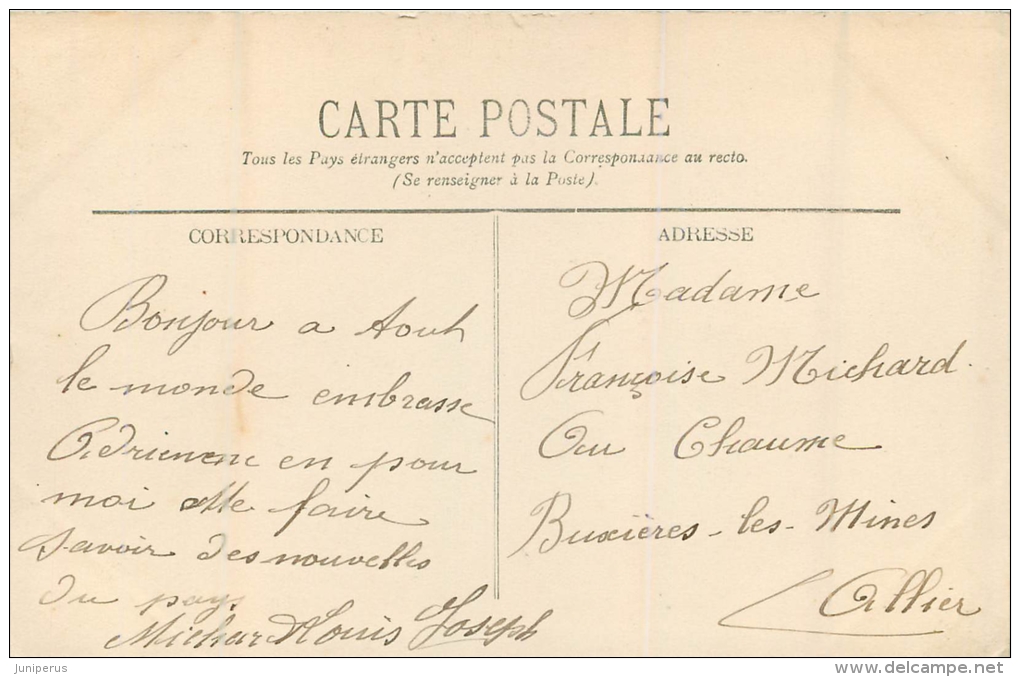 CARTE POSTALE
Tous les Pays étrangers n'acceptent pas la Correspondance au recto.
(Se renseigner à la Poste).
CORRESPONDANCE
Bonjour a tout
le monde embrasse
Adrienenc en pour
moi et Me faire
savoir des nouvelles
du pays
Michard Louis Joseph
ADRESSE
Madame
Françoise Michard.
Au Chaume
Buxières-les-Mines
Allier
juniperus
www.delcampe.net